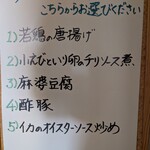 こちらからお選びください
1)若鶏の唐揚げ
2)小えびといり卵のチリソース煮
3)麻婆豆腐
4)酢豚
5)イカのオイスターソース炒め